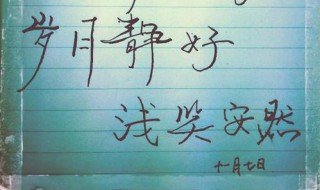 岁月静好
浅笑安然
十一月七日